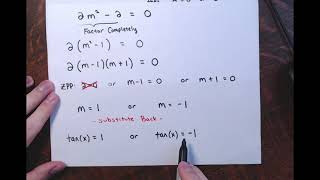 2m² - 2 = 0
Factor Completely
2(m² - 1) = 0
2(m-1)(m+1) = 0
ZPP: 2=0 or m-1=0 or m+1=0
m = 1 or m = -1
- Substitute Back -
tan(x) = 1 or tan(x) = -1